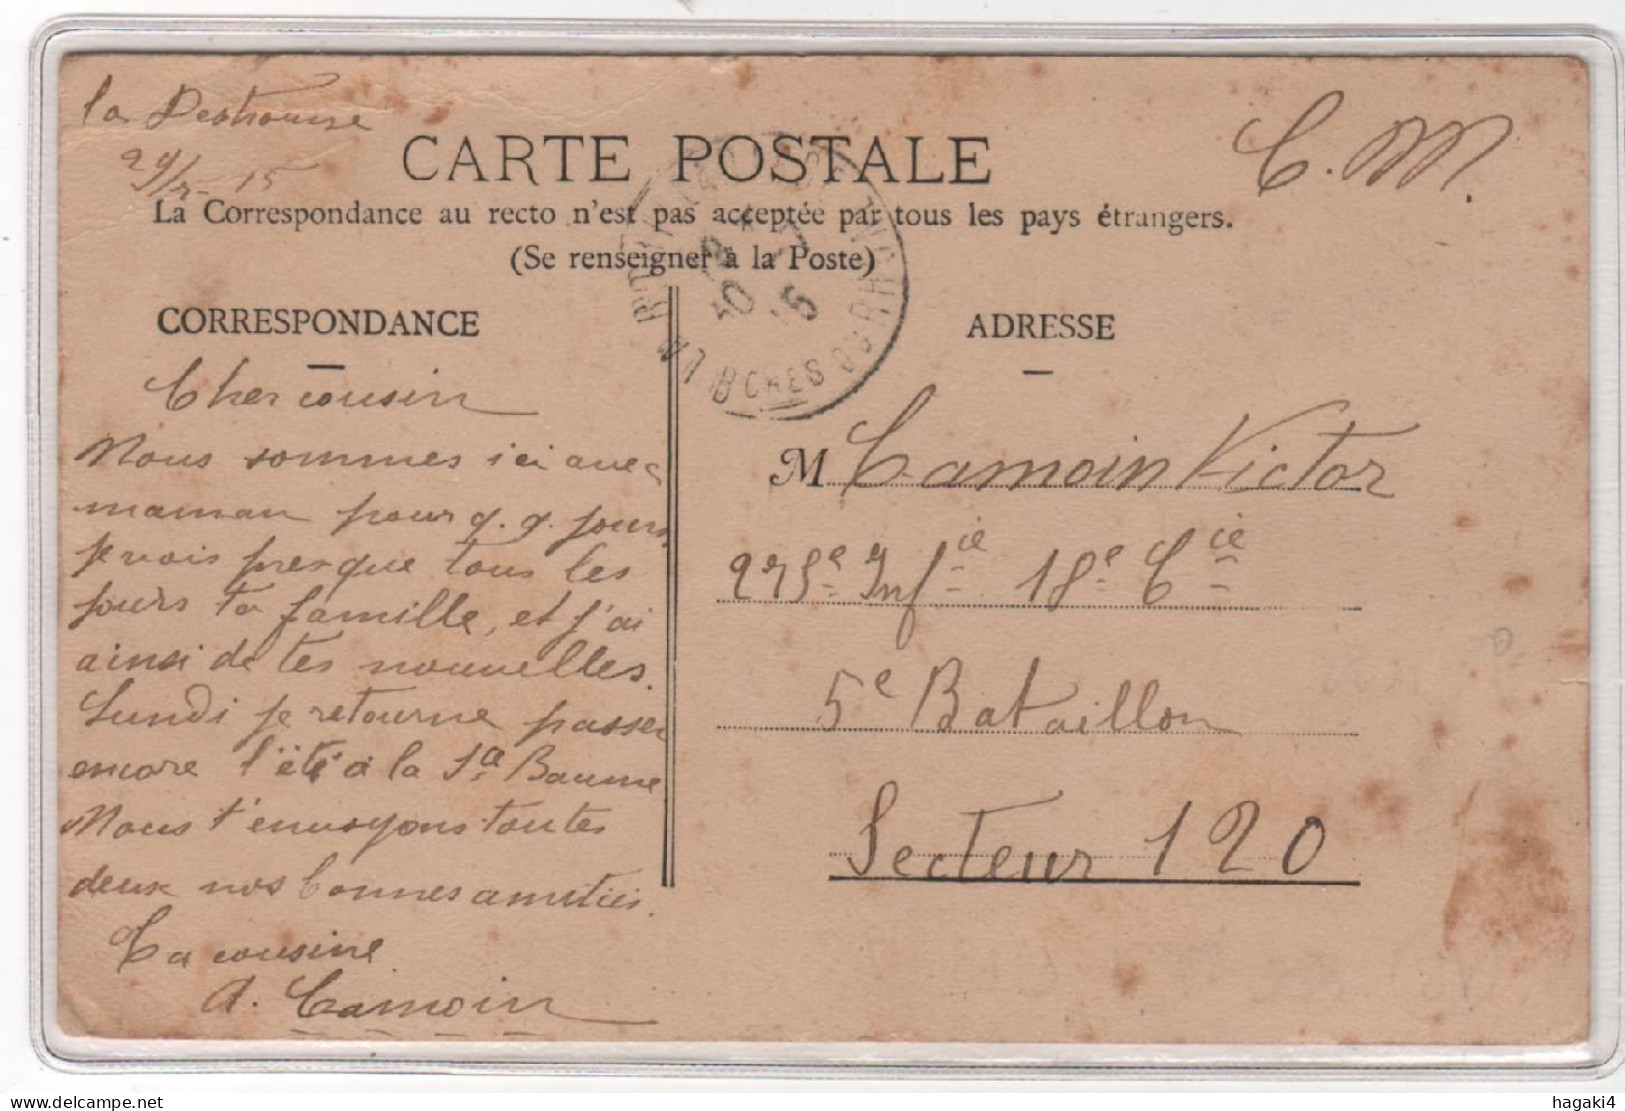 la Destrousse
29/7-15
C. M.
CARTE POSTALE
La Correspondance au recto n'est pas acceptée par tous les pays étrangers.
(Se renseigner à la Poste)
CORRESPONDANCE
Cher cousin
Nous sommes ici avec
maman pour q. q. jours
je vois presque tous les
jours ta famille, et j'ai
ainsi de tes nouvelles.
Lundi je retourne passer
encore l'été à la Ste Baume
Nous t'envoyons toutes
deux nos bonnes amitiés.
Ta cousine
A. Camoin
ADRESSE
M Camoin Victor
275e Infie 18e Cie
5e Bataillon
Secteur 120
BCHES DU RHONE
hagaki4
delcampe.net